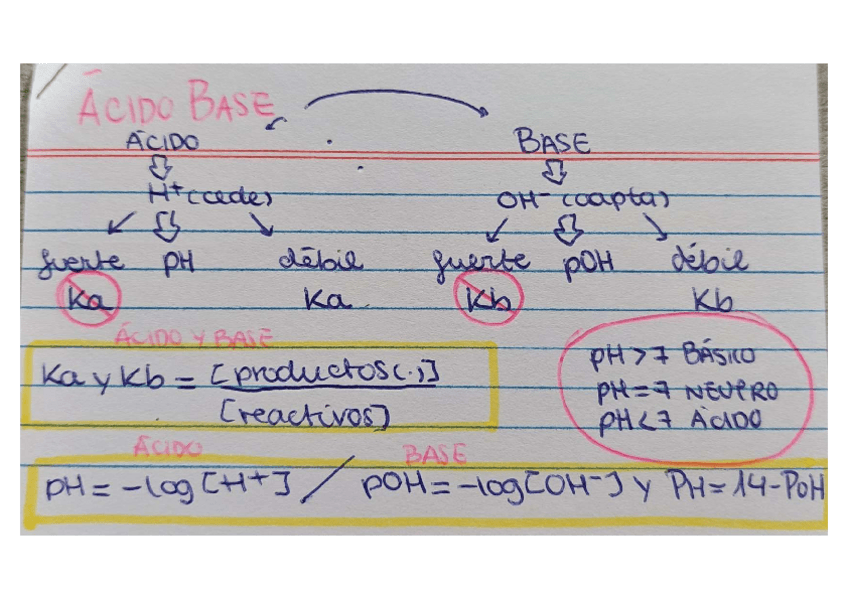 ÁCIDO BASE
ÁCIDO BASE
H⁺ (cede) OH⁻ (capta)
fuerte pH débil fuerte pOH débil
Ka Ka Kb Kb
ÁCIDO Y BASE
Ka y Kb = [productos(.)]
[reactivos]
pH > 7 BÁSICO
pH = 7 NEUTRO
pH < 7 ÁCIDO
ÁCIDO BASE
pH = -log [H+] / pOH = -log [OH⁻] y PH = 14 - POH